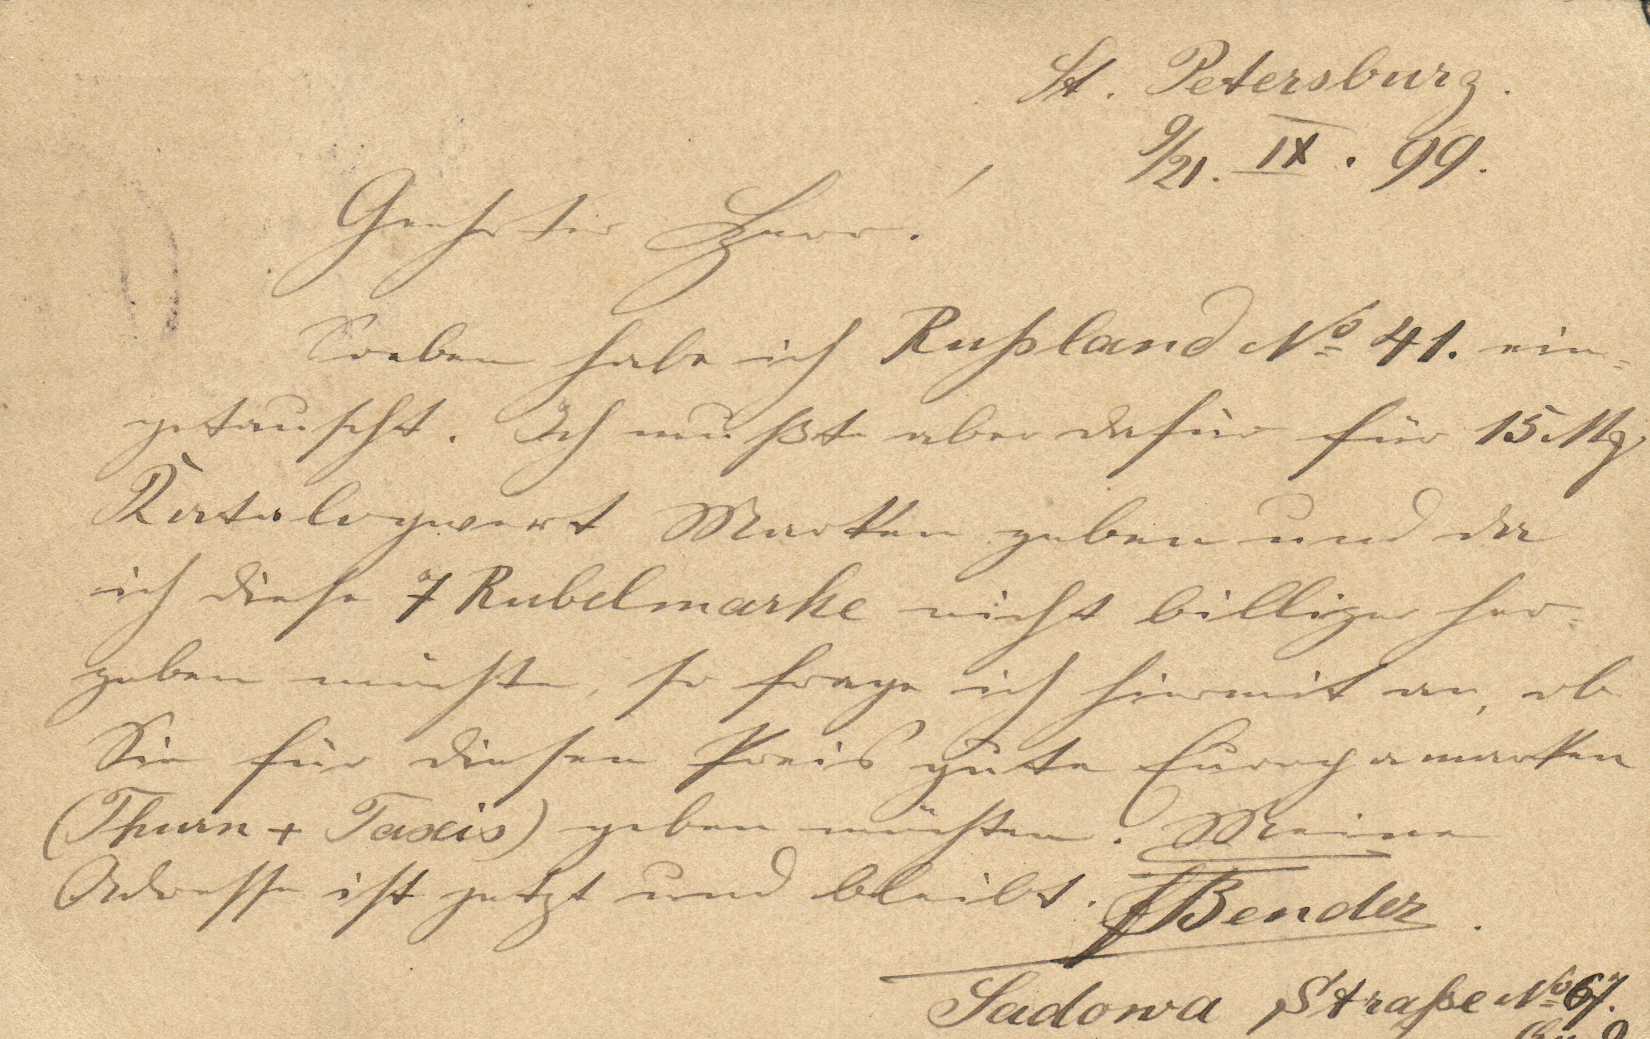 St. Petersburg.
9/21. IX. 99.
Geehrter Herr!
Soeben habe ich Rußland No 41. ein-
getauscht. Ich mußte aber dafür für 15 Mg
Katalogwert Marken geben und da
ich diese 7 Rubelmarke nicht billiger her-
geben möchte, so frage ich hiermit an, ob
Sie für diesen Preis gute Europamarken
(Thurn + Taxis) geben möchten. Meine
Adresse ist jetzt und bleibt.
Bender.
Sadowa Straße No 67.